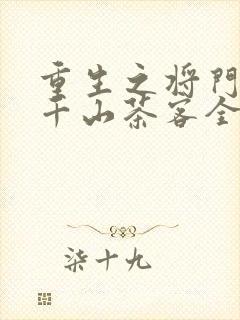 重生之将门
千山茶客全
柒十九